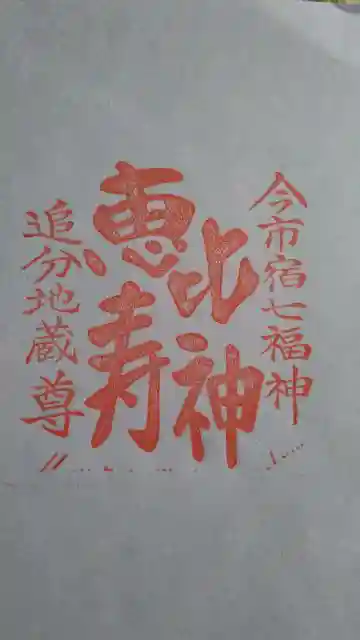 今市宿七福神
恵比寿神
追分地蔵尊